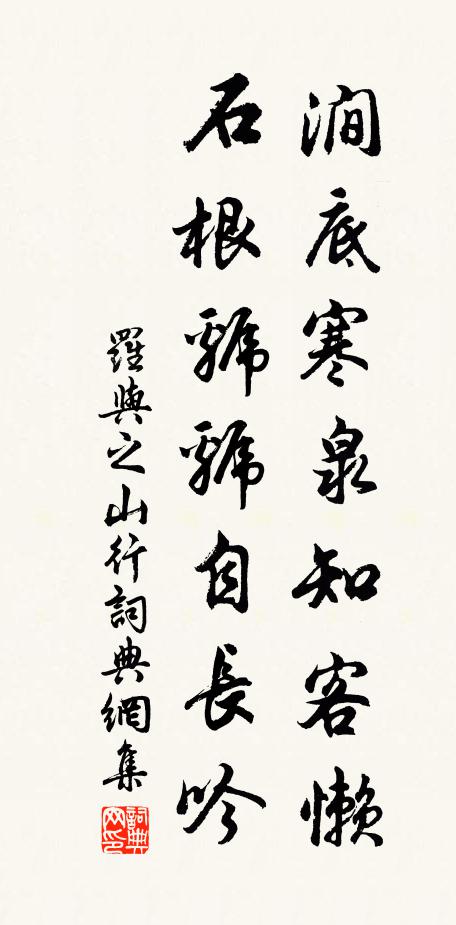 澗底寒泉知客懶
石根虢虢自長吟
羅與之山行詞典網集
詞典网印